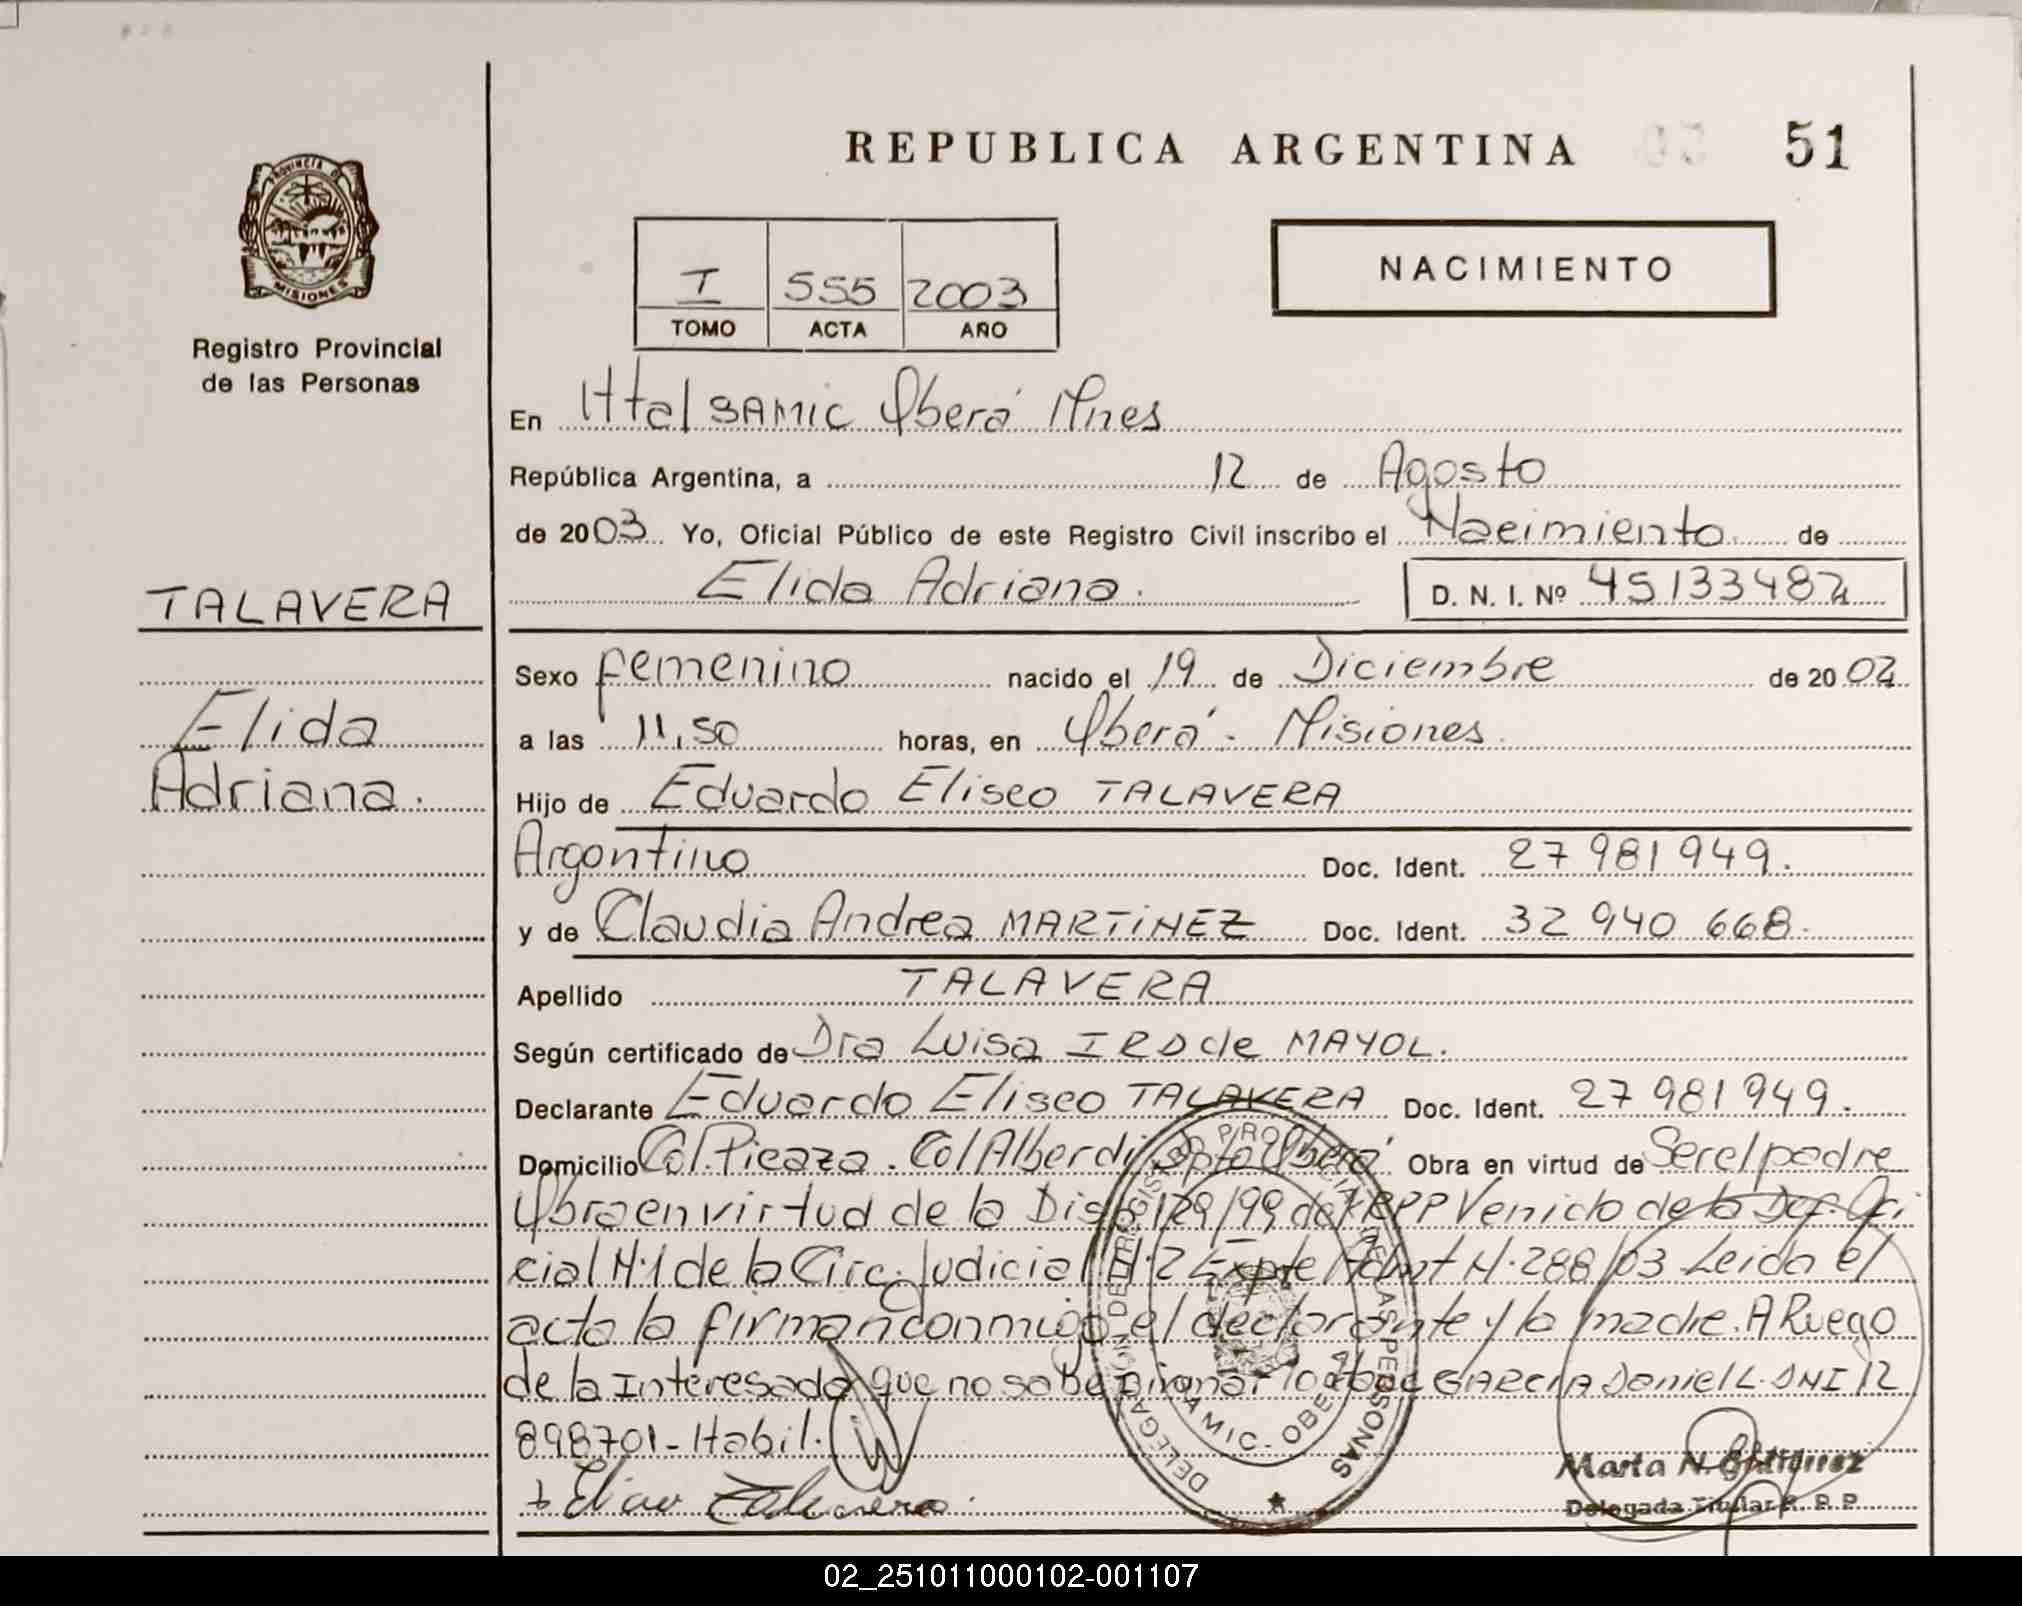 REPUBLICA ARGENTINA 51
PROVINCIA DE MISIONES
Registro Provincial
de las Personas
I 555 2003
TOMO ACTA AÑO
NACIMIENTO
En Httal SAMIC Oberá Mnes
República Argentina, a 12 de Agosto
de 2003 Yo, Oficial Público de este Registro Civil inscribo el Nacimiento de
Elida Adriana. D. N. I. Nº 45133482
TALAVERA
Elida
Adriana.
Sexo femenino nacido el 19 de Diciembre de 2002
a las 11,50 horas, en Oberá - Misiones.
Hijo de Eduardo Eliseo TALAVERA
Argentino Doc. Ident. 27 981 949.
y de Claudia Andrea MARTINEZ Doc. Ident. 32 940 668.
Apellido TALAVERA
Según certificado de Dra Luisa de MAYOL.
Declarante Eduardo Eliseo TALAVERA Doc. Ident. 27 981 949.
Domicilio Col. Picaza. Col Alberdi Dpto Oberá Obra en virtud de Ser el padre
Obra en virtud de la Disp 129/99 del RPP Venido de la Def. Ofi
cial N·1 de la Circ. Judicial N·2 Expte N·288/03 Leida el
acta la firman conmigo el declarante y la madre. A Ruego
de la Interesada que no sabe firmar lo hace GARCIA Daniel L. DNI 12
898701 - Habil.
Marta N. Gutierrez
Delegada Titular R. P. P.
DELEGACION DE REGISTRO PROVINCIAL DE LAS PERSONAS
SAMIC - OBERA
02_251011000102-001107